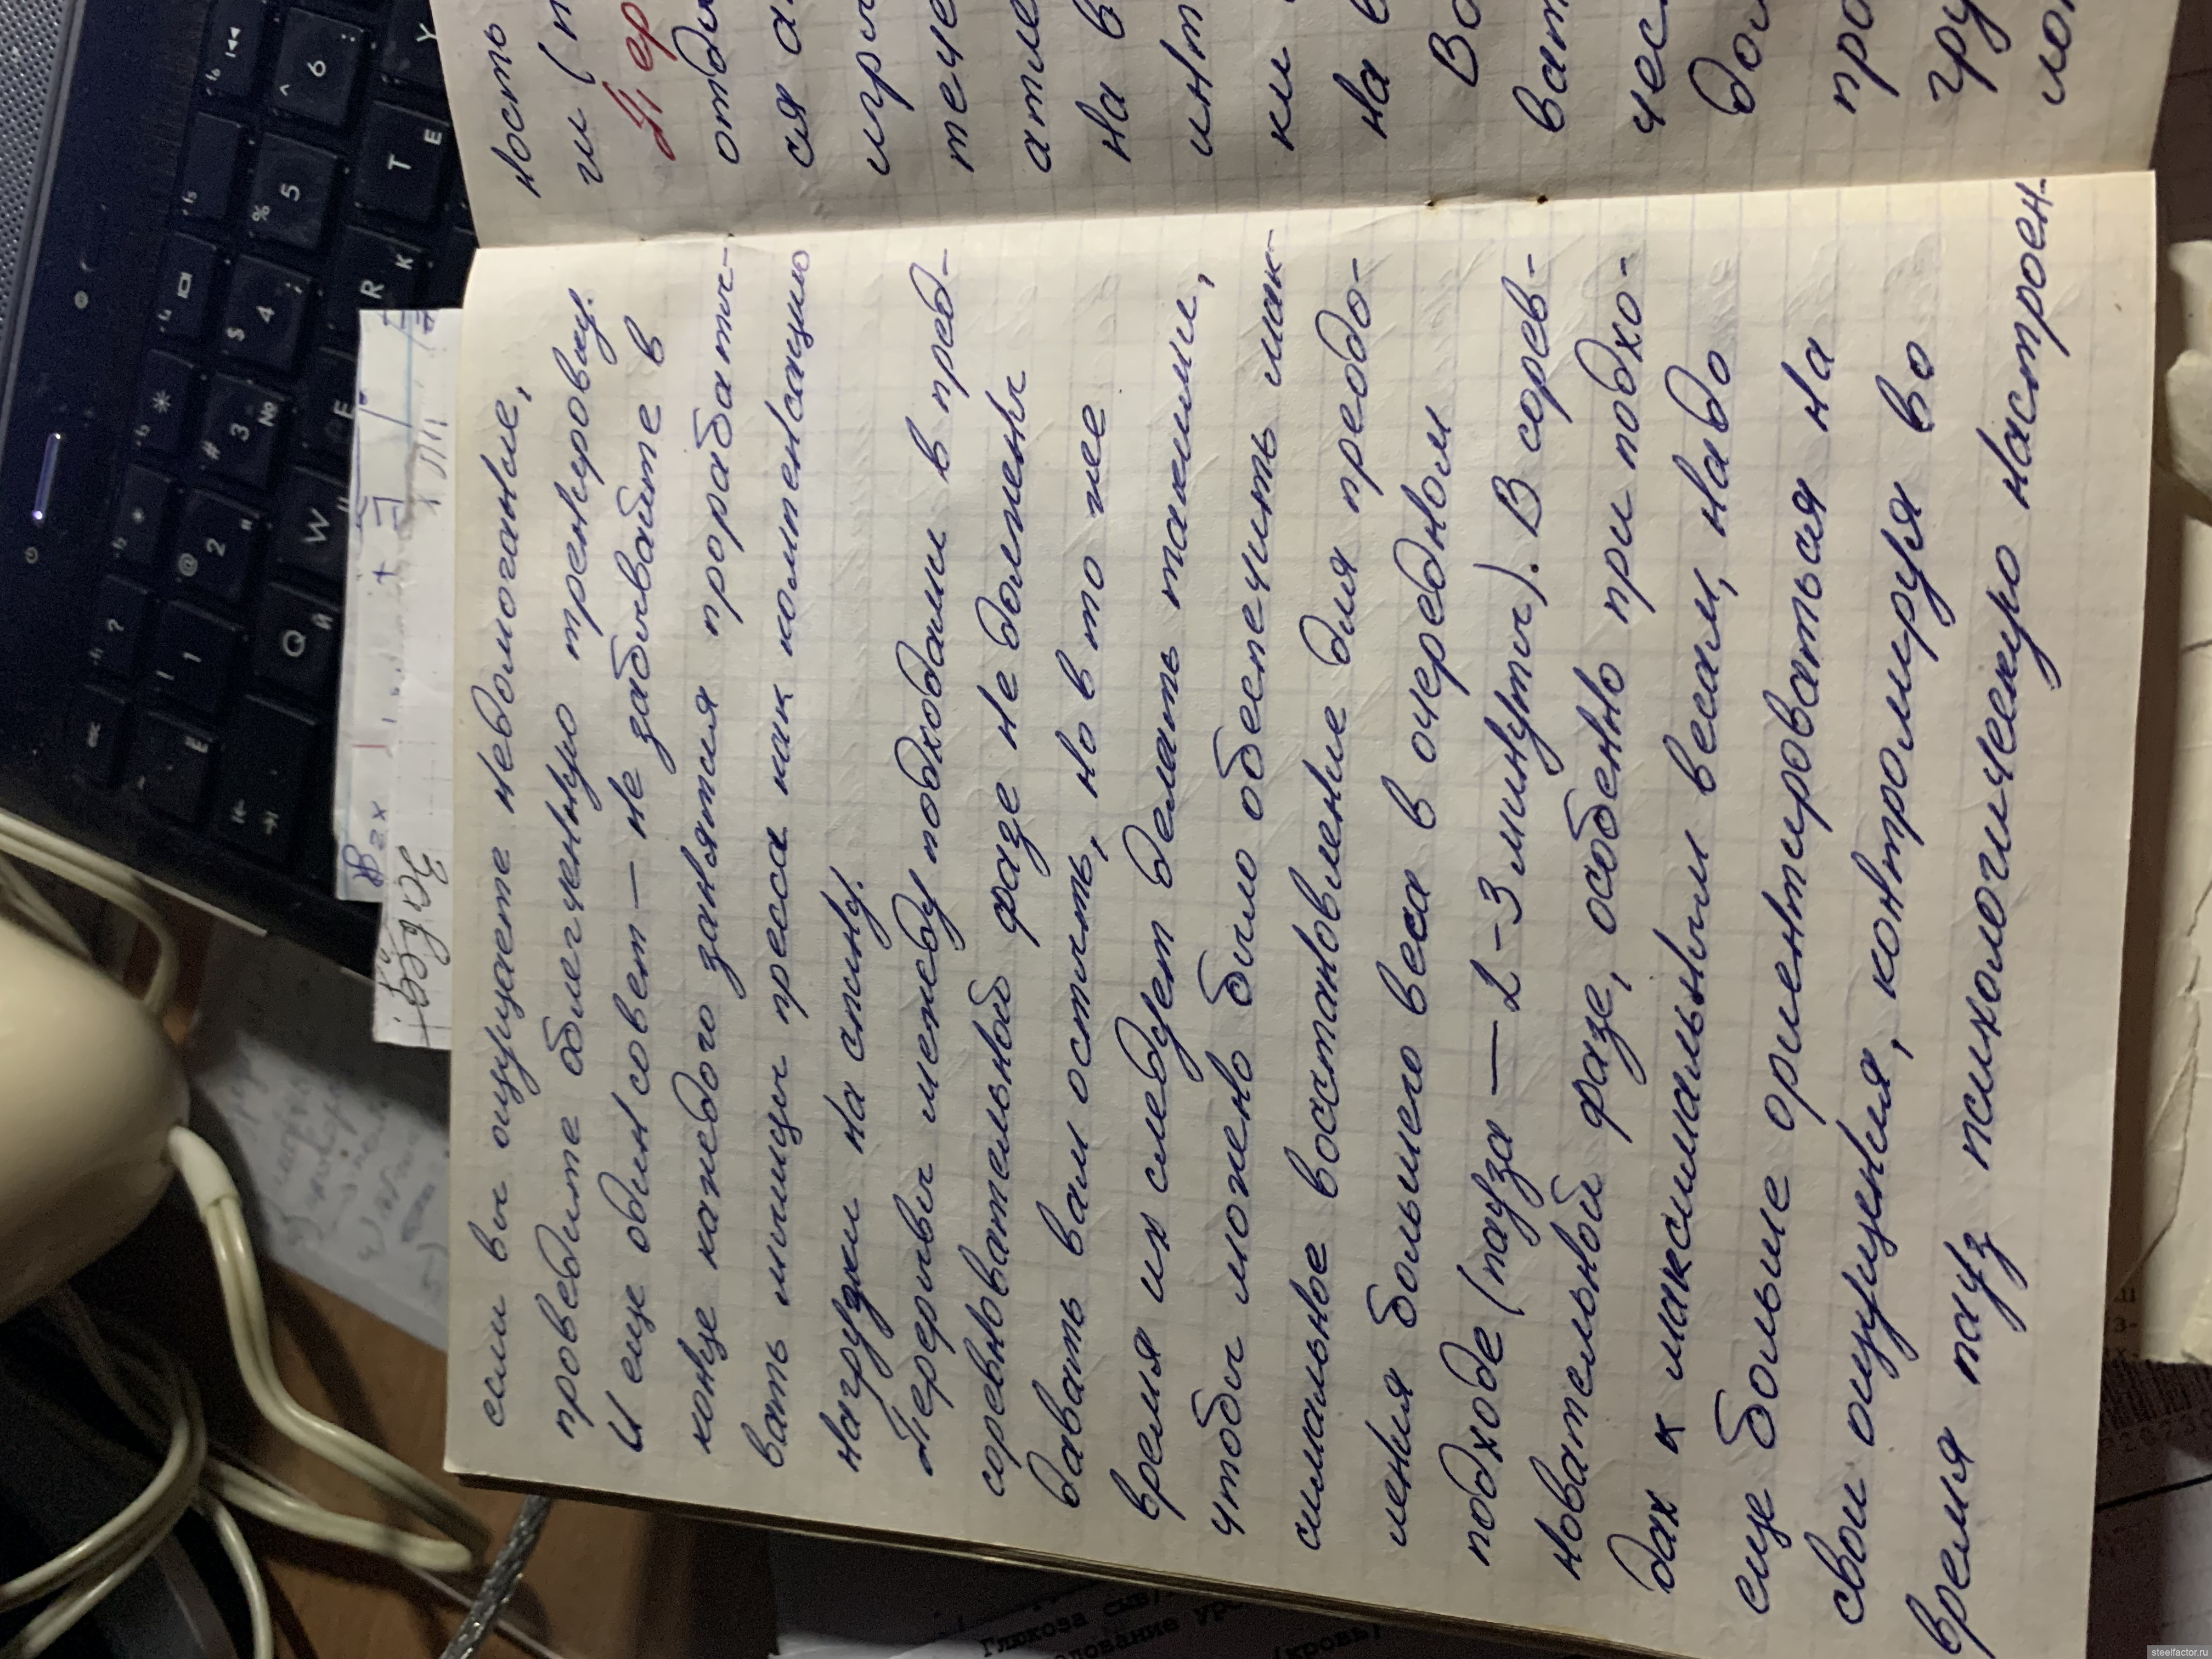 если вы ощущаете недомогание,
проведите облегченную тренировку.
И еще один совет — не забывайте в
конце каждого занятия прорабаты-
вать мышцы пресса как компенсацию
нагрузки на спину.
Перерывы между подходами в пред-
соревновательной фазе не должны
давать вам остыть, но в то же
время их следует делать такими,
чтобы можно было обеспечить мак-
симальное восстановление для преодо-
ления большего веса в очередном
подходе (пауза — 2-3 минуты). В сорев-
новательной фазе, особенно при подхо-
дах к максимальным весам, надо
еще больше ориентироваться на
свои ощущения, контролируя во
время пауз психологическую настроен-
ность
ги (п
отды
ся а
игра
тече
атле
на в
инт
ки
на в
Во
ват
чес
дол
про
гру
лот
esc
Q Й
W
E
R К
T Е
Y
1
2
3 №
4
5
6
Глюкоза
steelfactor.ru